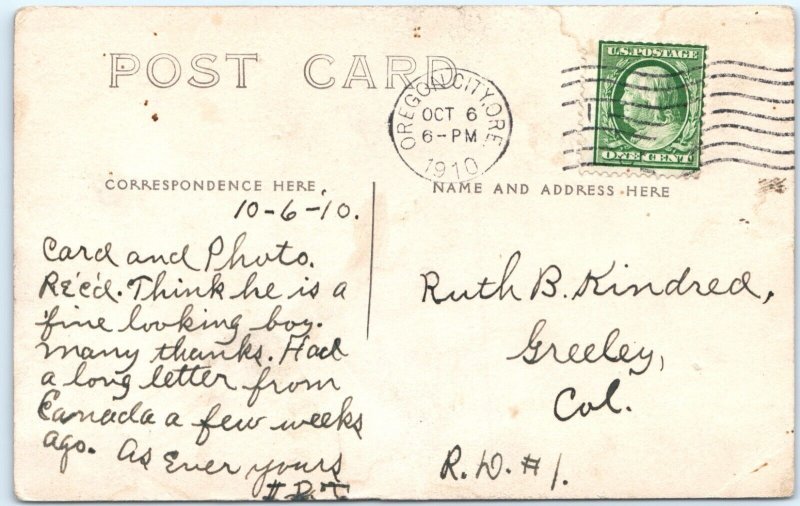 POST CARD
OREGON CITY, ORE.
OCT 6
6-PM
1910
U.S. POSTAGE
ONE CENT
CORRESPONDENCE HERE
NAME AND ADDRESS HERE
10-6-10.
Card and Photo.
Re'c'd. Think he is a
fine looking boy.
Many thanks. Had
a long letter from
Canada a few weeks
ago. As Ever yours
Ruth B. Kindred,
Greeley,
Col.
R.D. #1.